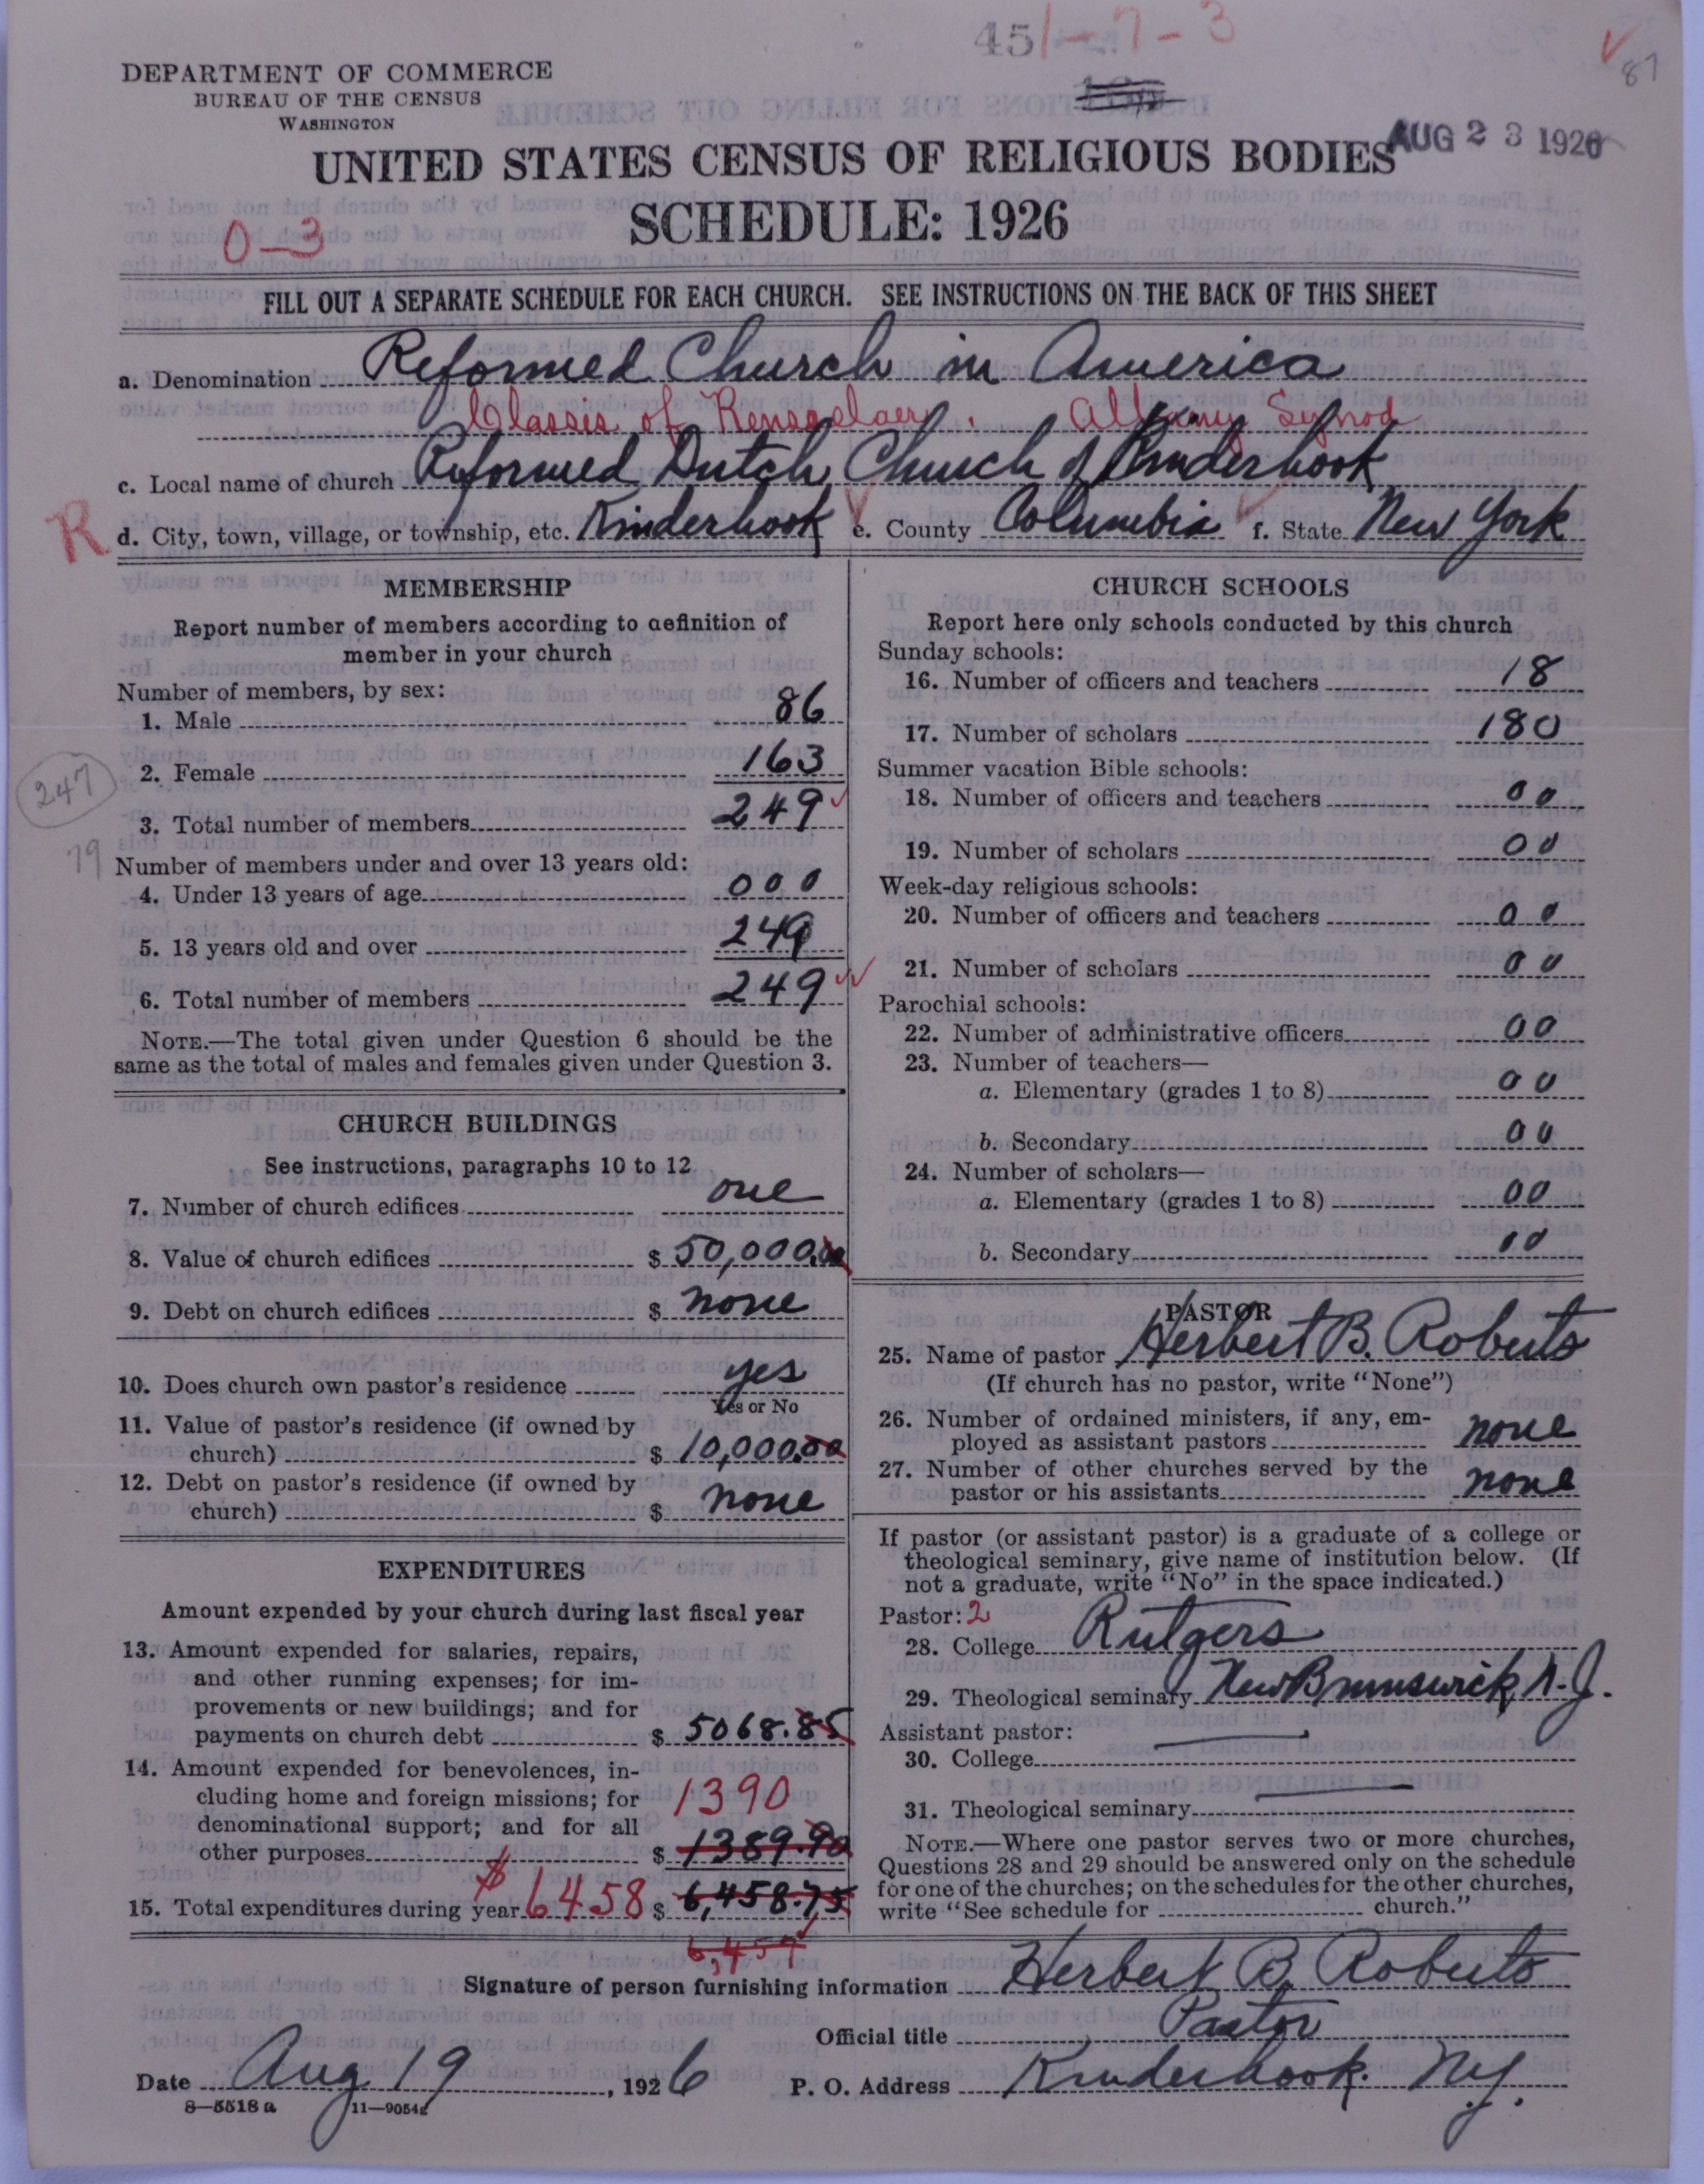 451-7-3
87
DEPARTMENT OF COMMERCE
BUREAU OF THE CENSUS
WASHINGTON
AUG 23 1926
UNITED STATES CENSUS OF RELIGIOUS BODIES
SCHEDULE: 1926
0-3
FILL OUT A SEPARATE SCHEDULE FOR EACH CHURCH. SEE INSTRUCTIONS ON THE BACK OF THIS SHEET
a. Denomination Reformed Church in America
Classis of Rensselaer. Albany Synod
c. Local name of church Reformed Dutch Church of Kinderhook
R d. City, town, village, or township, etc. Kinderhook e. County Columbia f. State New York
MEMBERSHIP
Report number of members according to definition of
member in your church
Number of members, by sex:
1. Male 86
2. Female 163
247
3. Total number of members 249
79
Number of members under and over 13 years old:
4. Under 13 years of age 000
5. 13 years old and over 249
6. Total number of members 249
NOTE.—The total given under Question 6 should be the
same as the total of males and females given under Question 3.
CHURCH BUILDINGS
See instructions, paragraphs 10 to 12
7. Number of church edifices one
8. Value of church edifices $ 50,000.00
9. Debt on church edifices $ none
10. Does church own pastor's residence yes
Yes or No
11. Value of pastor's residence (if owned by
church) $ 10,000.00
12. Debt on pastor's residence (if owned by
church) $ none
EXPENDITURES
Amount expended by your church during last fiscal year
13. Amount expended for salaries, repairs,
and other running expenses; for im-
provements or new buildings; and for
payments on church debt $ 5068.85
14. Amount expended for benevolences, in-
cluding home and foreign missions; for 1390
denominational support; and for all
other purposes $ 1389.90
15. Total expenditures during year $ 6458 $ 6,458.75
6,459
CHURCH SCHOOLS
Report here only schools conducted by this church
Sunday schools:
16. Number of officers and teachers 18
17. Number of scholars 180
Summer vacation Bible schools:
18. Number of officers and teachers 00
19. Number of scholars 00
Week-day religious schools:
20. Number of officers and teachers 00
21. Number of scholars 00
Parochial schools:
22. Number of administrative officers 00
23. Number of teachers—
a. Elementary (grades 1 to 8) 00
b. Secondary 00
24. Number of scholars—
a. Elementary (grades 1 to 8) 00
b. Secondary 00
PASTOR
25. Name of pastor Herbert B. Roberts
(If church has no pastor, write "None")
26. Number of ordained ministers, if any, em-
ployed as assistant pastors none
27. Number of other churches served by the
pastor or his assistants none
If pastor (or assistant pastor) is a graduate of a college or
theological seminary, give name of institution below. (If
not a graduate, write "No" in the space indicated.)
Pastor: 2
28. College Rutgers
29. Theological seminary New Brunswick, N.J.
Assistant pastor:
30. College
31. Theological seminary
NOTE.—Where one pastor serves two or more churches,
Questions 28 and 29 should be answered only on the schedule
for one of the churches; on the schedules for the other churches,
write "See schedule for church."
Signature of person furnishing information Herbert B. Roberts
Official title Pastor
Date Aug 19, 1926 P. O. Address Kinderhook. N.Y.
8—5518 a 11—9054